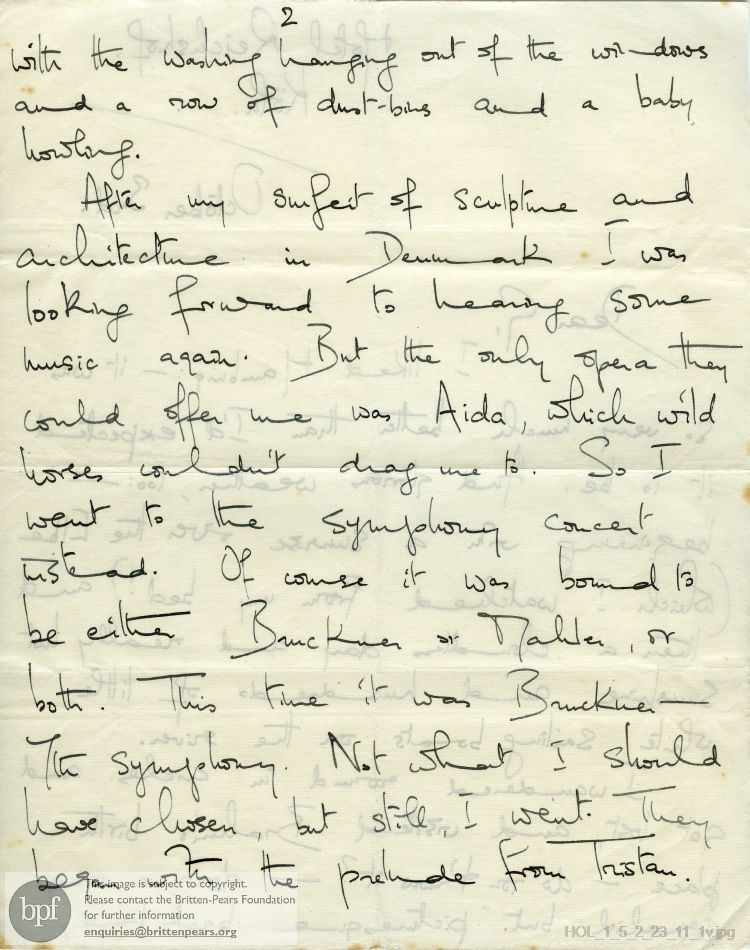 2
with the washing hanging out of the windows
and a row of dust-bins and a baby
howling.
After my surfeit of sculpture and
architecture in Denmark I was
looking forward to hearing some
music again. But the only opera they
could offer me was Aida, which wild
horses couldn't drag me to. So I
went to the symphony concert
instead. Of course it was bound to
be either Bruckner or Mahler, or
both. This time it was Bruckner—
7th symphony. Not what I should
have chosen, but still, I went. They
began with the prelude from Tristan.
bpf
This image is subject to copyright.
Please contact the Britten-Pears Foundation
for further information
enquiries@brittenpears.org
HOL_1_5_2_23_11_1v.jpg